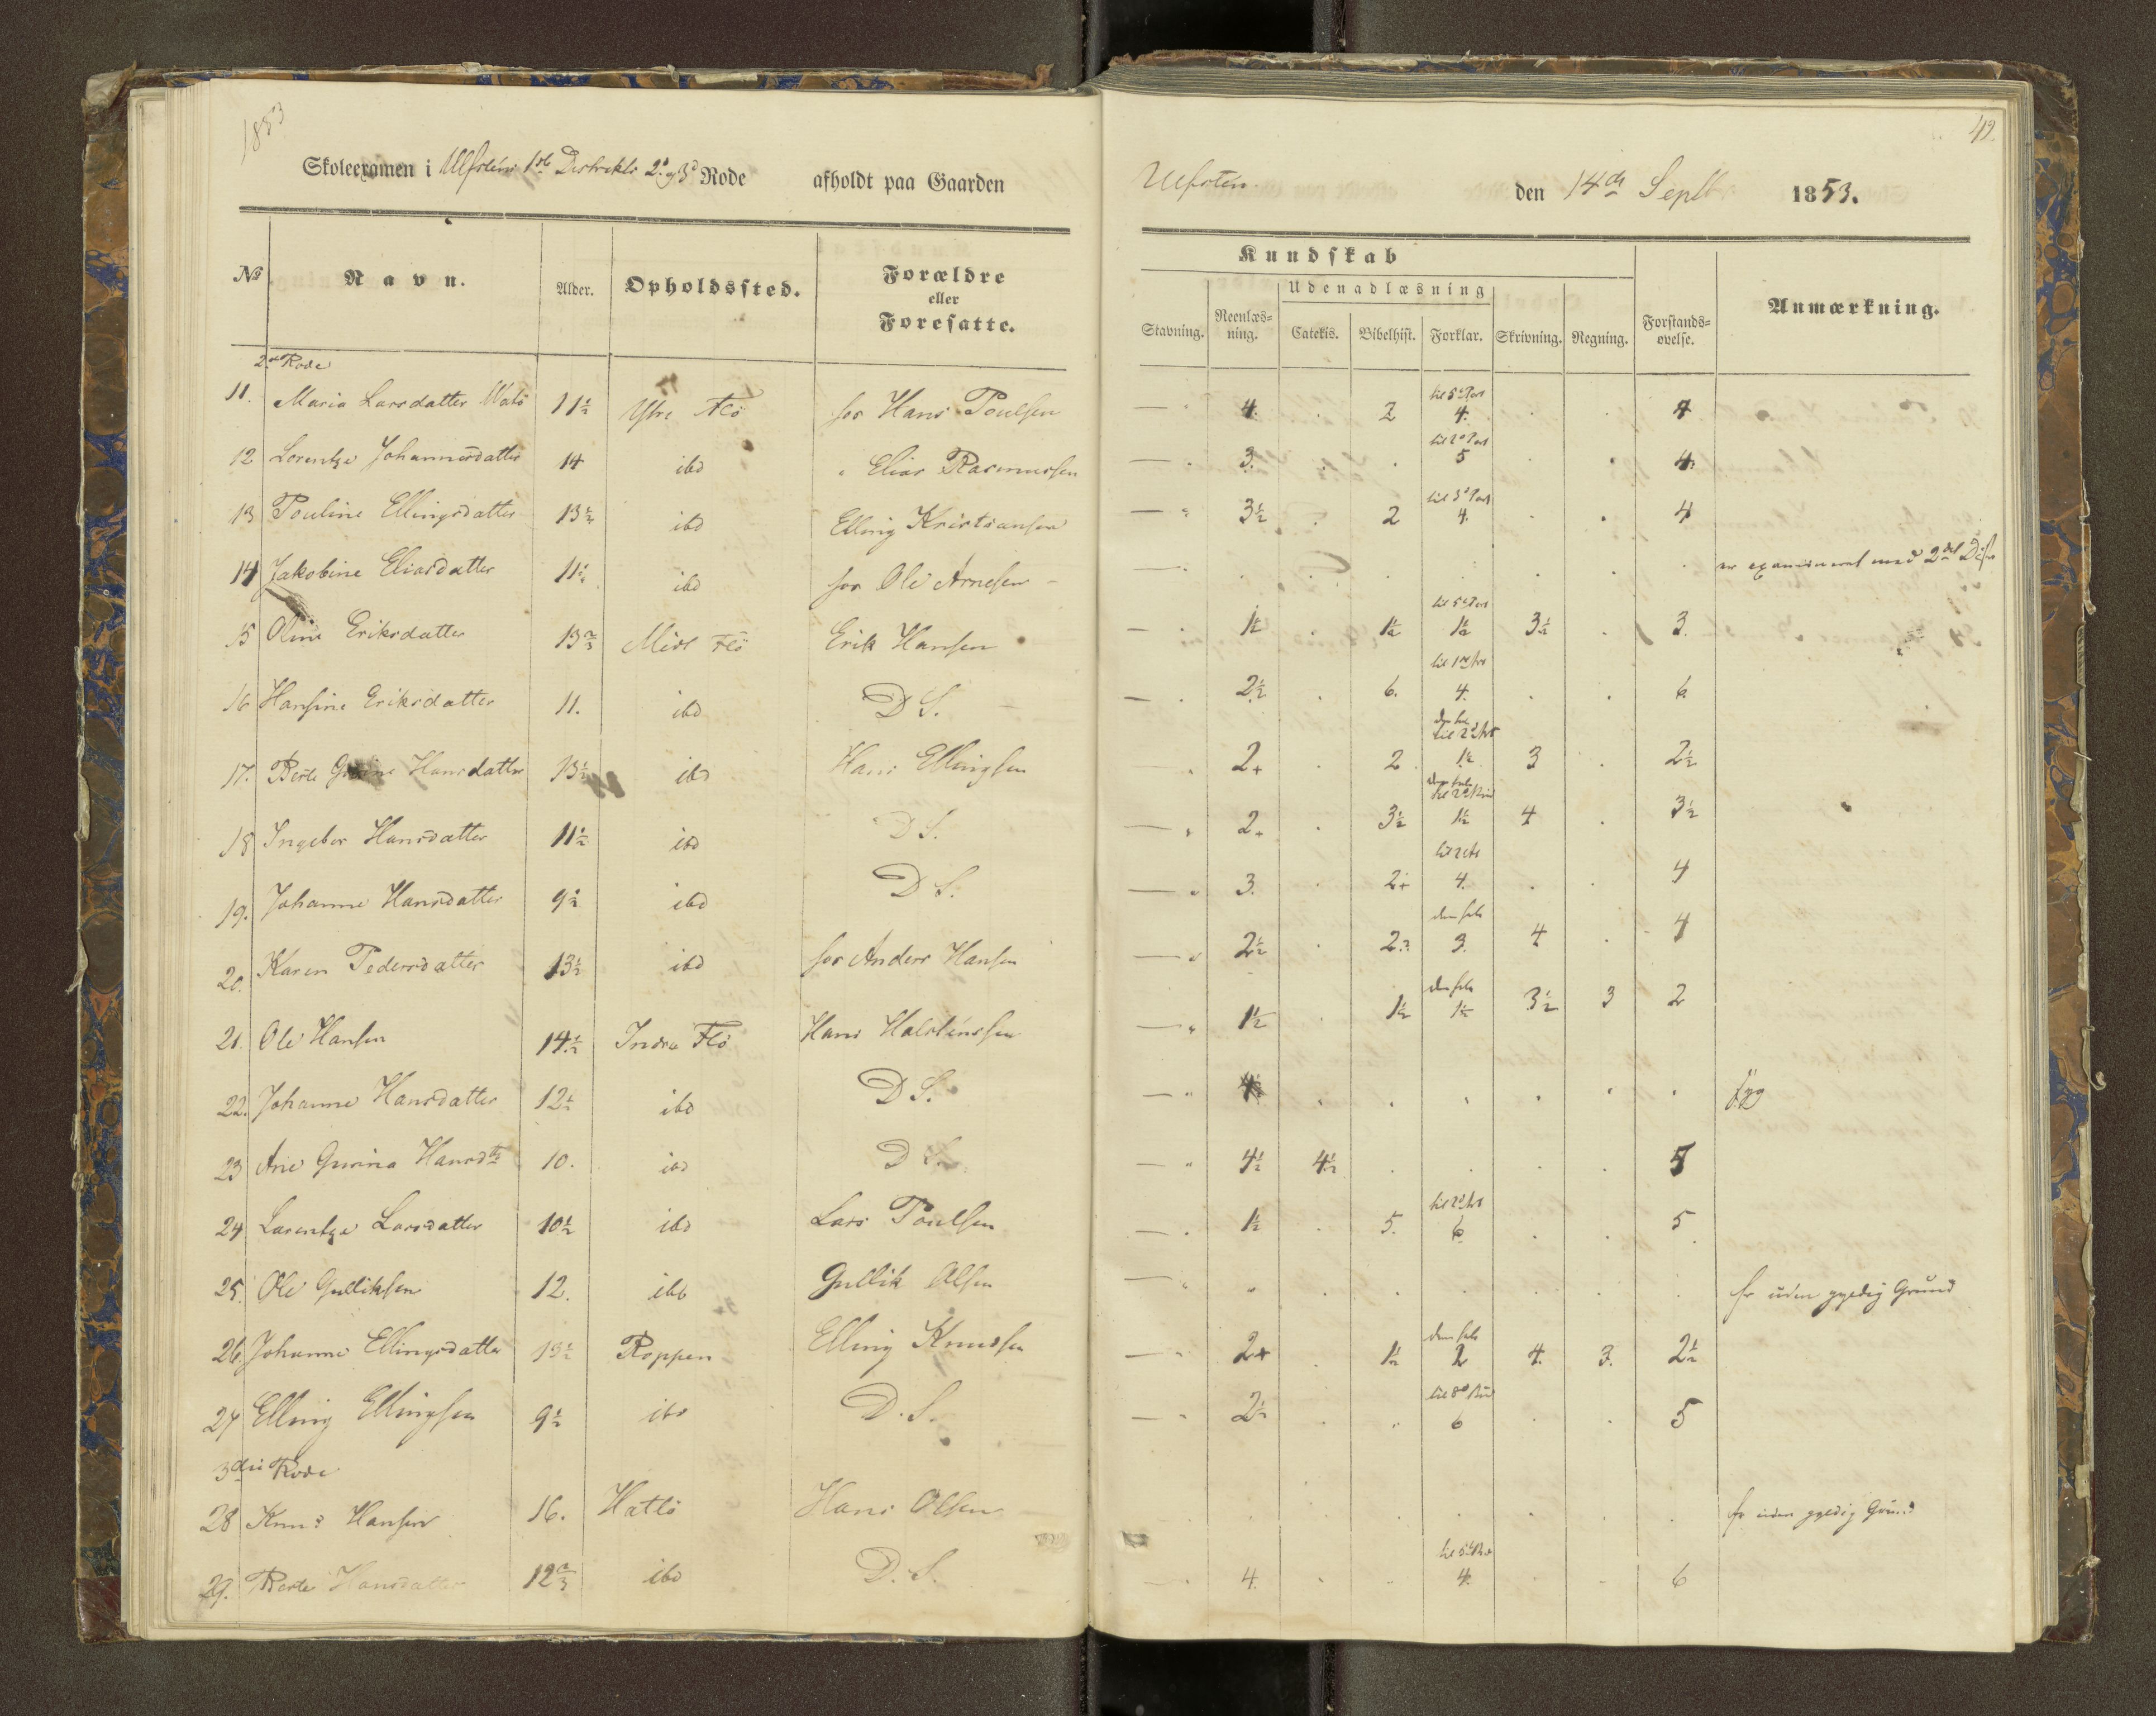 1853
49.
Skoleexamen i Ulfsten 1ste Distrikts 2d og 3d Rode afholdt paa Gaarden Ulfsten. den 14de Septb. 1853.
No Navn. Alder. Opholdssted. Forældre eller Foresatte. Kundskab Anmærkning.
Udenadlæsning
Stavning. Reenlæsning. Catekis. Bibelhist. Forklar. Skrivning. Regning. Forstandsøvelse.
2den Rode
11. Maria Larsdatter 11½ Ytre Flö for Hans Poulsen — 4. . 2 til 5te Part 4. . . 4
12 Lorentze Johannesdatter 14 ibd " Elias Rasmussen — 3. . . til 2d Part 5 . . 4.
13 Pouline Ellingsdatter 13½ ibd Elling Kristiansen — 3½ . 2 til 3d Part 4. . . 4
14 Jakobine Eliasdatter 11½ ibd for Ole Arnesen — . . . . . . . er examineret med 2det Distr
15 Oline Eriksdatter 13⅔ Midt Flö Erik Hansen — 1½ . 1½ til 5te Part 1½ 3½ . 3.
16 Hansine Eriksdatter 11. ibd D S. — 2½ . 6. 4. . . 6.
17. Berte Hansdatter 13½ ibd Hans Ellingsen 2+ . 2 1½ 3 . 2½
18 Ingebor Hansdatter 11½ ibd D S. — 2+ . 3½ 1½ 4 . 3½
19. Johanne Hansdatter 9½ ibd D S. — 3. . 2+ 4. . . 4
20. Karen Pedersdatter 13½ ibd for Anders Hansen — 2½ . 2.? den hele 3. 4 . 4
21. Ole Hansen 14½ Indre Flö Hans Halstensen — 1½ . 1½ den hele 1½ 3½ 3 2
22. Johanne Hansdatter 12½ ibd D S. — . . . . . . syg
23 Ane Gurina Hansdtr 10. ibd D S. — 4½ 4½ . . . . 5
24 Larentze Larsdatter 10½ ibd Lars Poulsen — 1½ . 5. 6 . . 5
25. Ole Gulliksen 12. ibd Gullik Olsen — " . . . . . . fr uden gyldig Grund
26. Johanne Ellingsdatter 13½ Roppen Elling Knudsen — 2+ . 1½ den hele 2 4. 3. 2½
27 Elling Ellingsen 9½ ibd D. S. — 2½ . " 6 . . 5
3die Rode
28 Knud Hansen 16. Hatlö Hans Olsen . . . . . . fr uden gyldig Grund
29. Berte Hansdatter 12⅔ ibd D. S. — 4. . . 4. . . 6